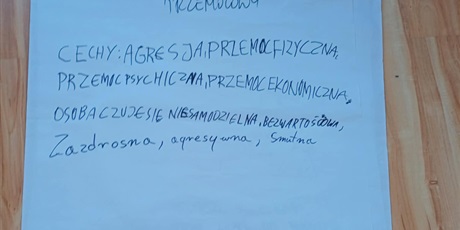 PRZEMOCOWY
CECHY: AGRESJA, PRZEMOC FIZYCZNA,
PRZEMOC PSYCHICZNA, PRZEMOC EKONOMICZNA,
OSOBA CZUJE SIĘ NIESAMODZIELNA, BEZWARTOŚCIOWA,
Zazdrosna, agresywna, smutna